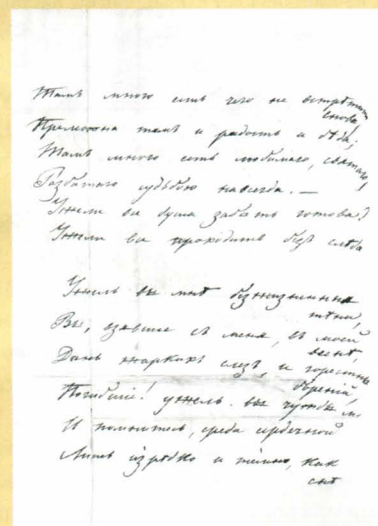 Тамъ много есть чего не встрѣтит
снова,
Премѣнна тамъ и радость и бѣда;
Тамъ много есть любимаго, святаго,
Разбитаго судьбою навсегда. —
Ужели ва душа забыть готова?
Ужели ва проходитъ безъ слѣда
Ужель вы мнѣ безжизненныя
тѣни,
Вы, взявшіе съ меня, въ моей
веснѣ,
Дань жаркихъ слезъ, и горестныхъ
бореній,
Погибшіе! ужель вы чужды м.
И помнитесь, среди сердечной
Лишь изрѣдка и темно, какъ
снѣ